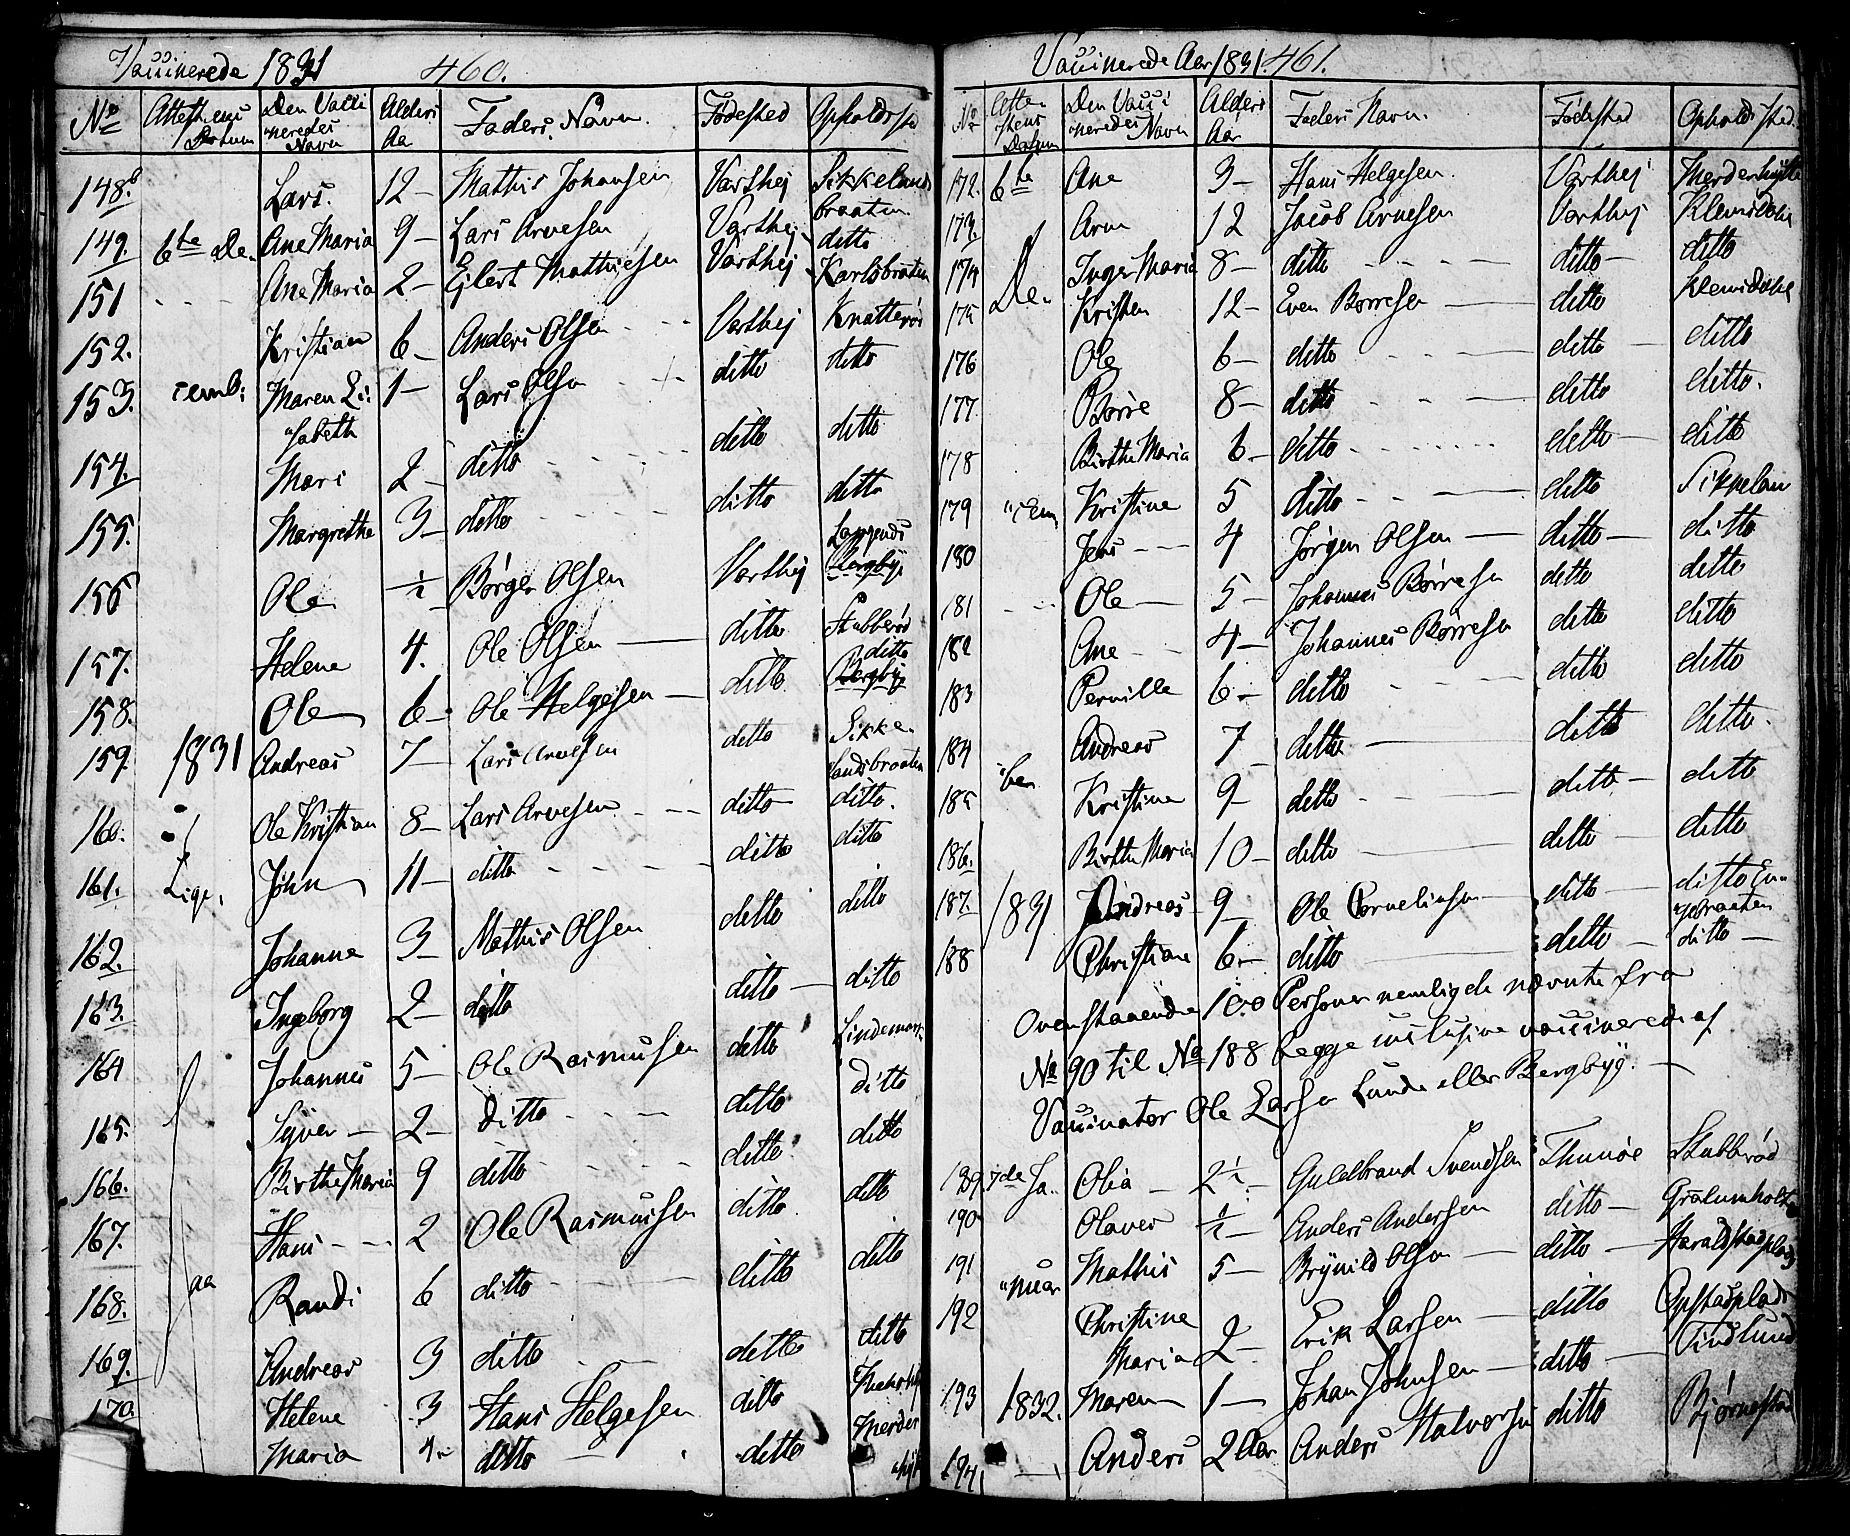 Vaccinerede 1831 460.
No Attestens Datum Den Vacci neredes Navn Alders Aa Faders Navn Fødested Opholdssted
148b Lars. 12 – Mathis Johansen Varthej Sikkelands
braaten
149. 6te De- Ane Maria 9 – Lars Arvesen Varthej ditto
151 Ane Maria 2 – Ejlert Mathiesen Varthej Karlsbraaten
152. Kristian 6 – Anders Olsen Varthej Knatterød
153. cemb: Maren Li: 1 – Lars Olsen ditto ditto
sabeth
154. Mari 2 – ditto ditto ditto
155. Margrethe 3 – ditto ditto ditto
156 Ole ½ Børger Olsen Varthej Bergbyj
157. Helene 4. Ole Olsen ditto Stubberød
ditto
158. Ole 6 – Ole Helgesen ditto Bergbyj
159. 1831 Andreas 7 – Lars Arvesen ditto Sikke
landsbraaten
160. Ole Kristian 8 – Lars Arvesen ditto ditto.
161. Lige, John 11 – ditto ditto ditto
162. Johanne 3 – Mathis Olsen ditto ditto
163. Ingeborg 2 – ditto ditto – ditto
164 Johannes 5 – Ole Rasmusen ditto Lindemark
165. Syver – 2 – ditto ditto ditto
166. Birthe Maria 9 ditto ditto ditto
167. Hans 2 Ole Rasmussen ditto ditto
168. saa Randi 6 ditto ditto ditto
169. Andreas 3 ditto ditto ditto
170. Helene 3 Hans Helgesen ditto
Maria 4 – ditto ditto
Vaccinerede Aar 1831. 461.
No Atte- stens Datum Den Vacci neredes Navn Alders Aar Faders Navn. Fødested Opholdssted.
172. 6te Ane 3 – Hans Helgesen. Varthej
173. Arn 12 Jacob Arnesen Varthej Klemsdahl
174 De- Inger Maria 8 – ditto ditto – ditto
175 Kristen 12 – Even Børresen ditto Klemsdahl
176 Ole 6 – ditto ditto ditto
177 Børre 8 – ditto ditto ditto.
178 Birthe Maria 6 – ditto ditto – ditto
179 "cem Kristine 5 ditto ditto Sikkelan
180 Jens 4 Jørgen Olsen – ditto – ditto
181 Ole – 5 – Johannes Børresen ditto ditto
182 Ane 4 – Johannes Børresen ditto ditto
183 Pernille 6 – ditto ditto ditto
184 Andreas 7 ditto ditto ditto.
185 "ber Kristine 9 – ditto ditto – ditto
186. Birthe Maria 10 – ditto ditto ditto
187. 1831 Andreas 9 – Ole Corneliusen ditto ditto En-
gebraaten
188 Christiane 6 – ditto ditto – ditto –
Ovenstaaende 100 Personer nemlig de nævnte fra
No 90 til No 188 begge inclusive vaccinerede af
Vaccinatør Ole Larsen Lunde eller Bergbyj. –
189. 7de Ja- Olia – 2½ – Guldbrand Svendsen Thunøe Stubberød
190 Olaves ½ – Anders Andersen ditto – Grålumholt
191 "nuar Mathis 5 – Brynild Olsen – ditto – Haraldstadplads
192 Christine Erik Larsen – ditto Opstadplads
Maria 2 –
193 1832. Maren 1 – Johan Johnsen – ditto – Tindlund
194 Anders 2 Aar Anders Halvorsen ditto Bjørnstad